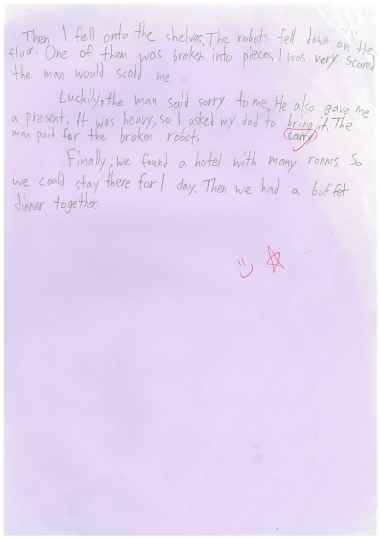 Then I fell onto the shelves. The robots fell down on the
floor. One of them was broken into pieces. I was very scared
the man would scold me.
Luckily, the man said sorry to me. He also gave me
a present. It was heavy, so I asked my dad to bring it. The
carry
man paid for the broken robot.
Finally, we found a hotel with many rooms. So
we could stay there for 1 day. Then we had a buffet
dinner together.